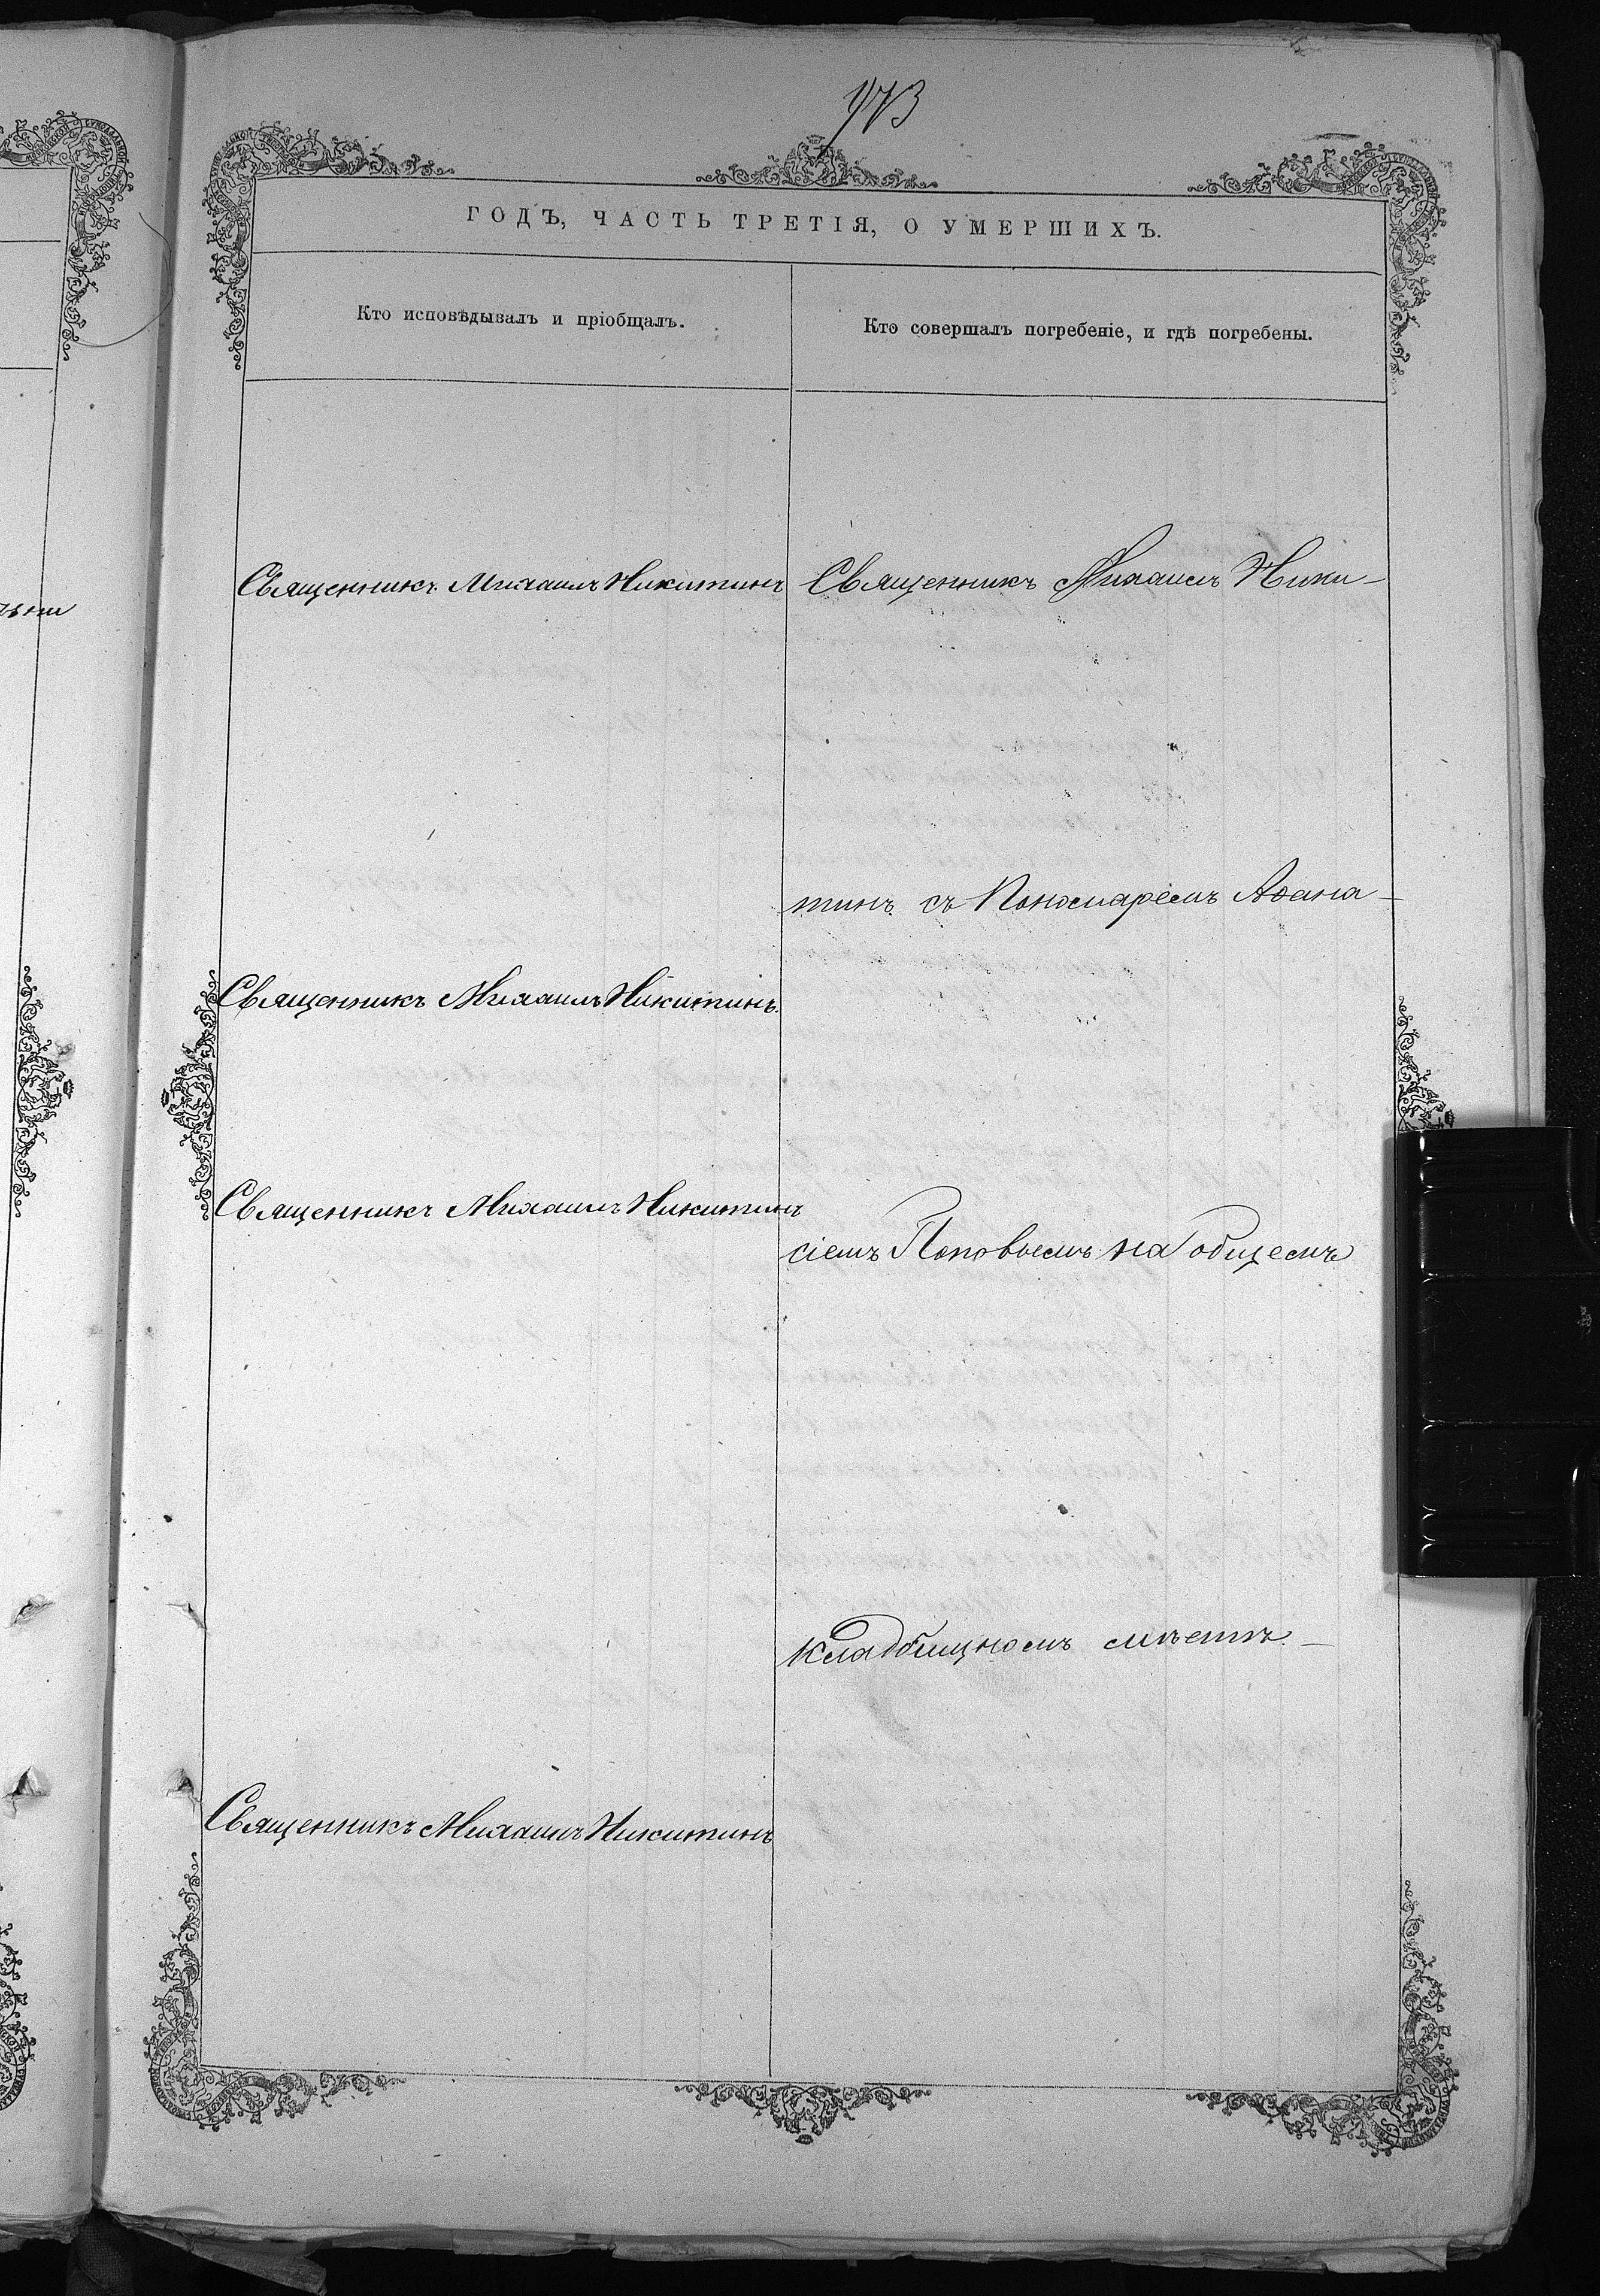 973
ГОДЪ, ЧАСТЬ ТРЕТІЯ, О УМЕРШИХЪ.
Кто исповѣдывалъ и пріобщалъ.
Кто совершалъ погребеніе, и гдѣ погребены.
Священникъ Михаилъ Никитинъ
Священникъ Михаилъ Ники-
тинъ съ Пономаремъ Аѳана-
Священникъ Михаилъ Никитинъ.
Священникъ Михаилъ Никитинъ
сіемъ Поповымъ на общемъ
кладбищномъ мѣстѣ. —
Священникъ Михаилъ Никитинъ